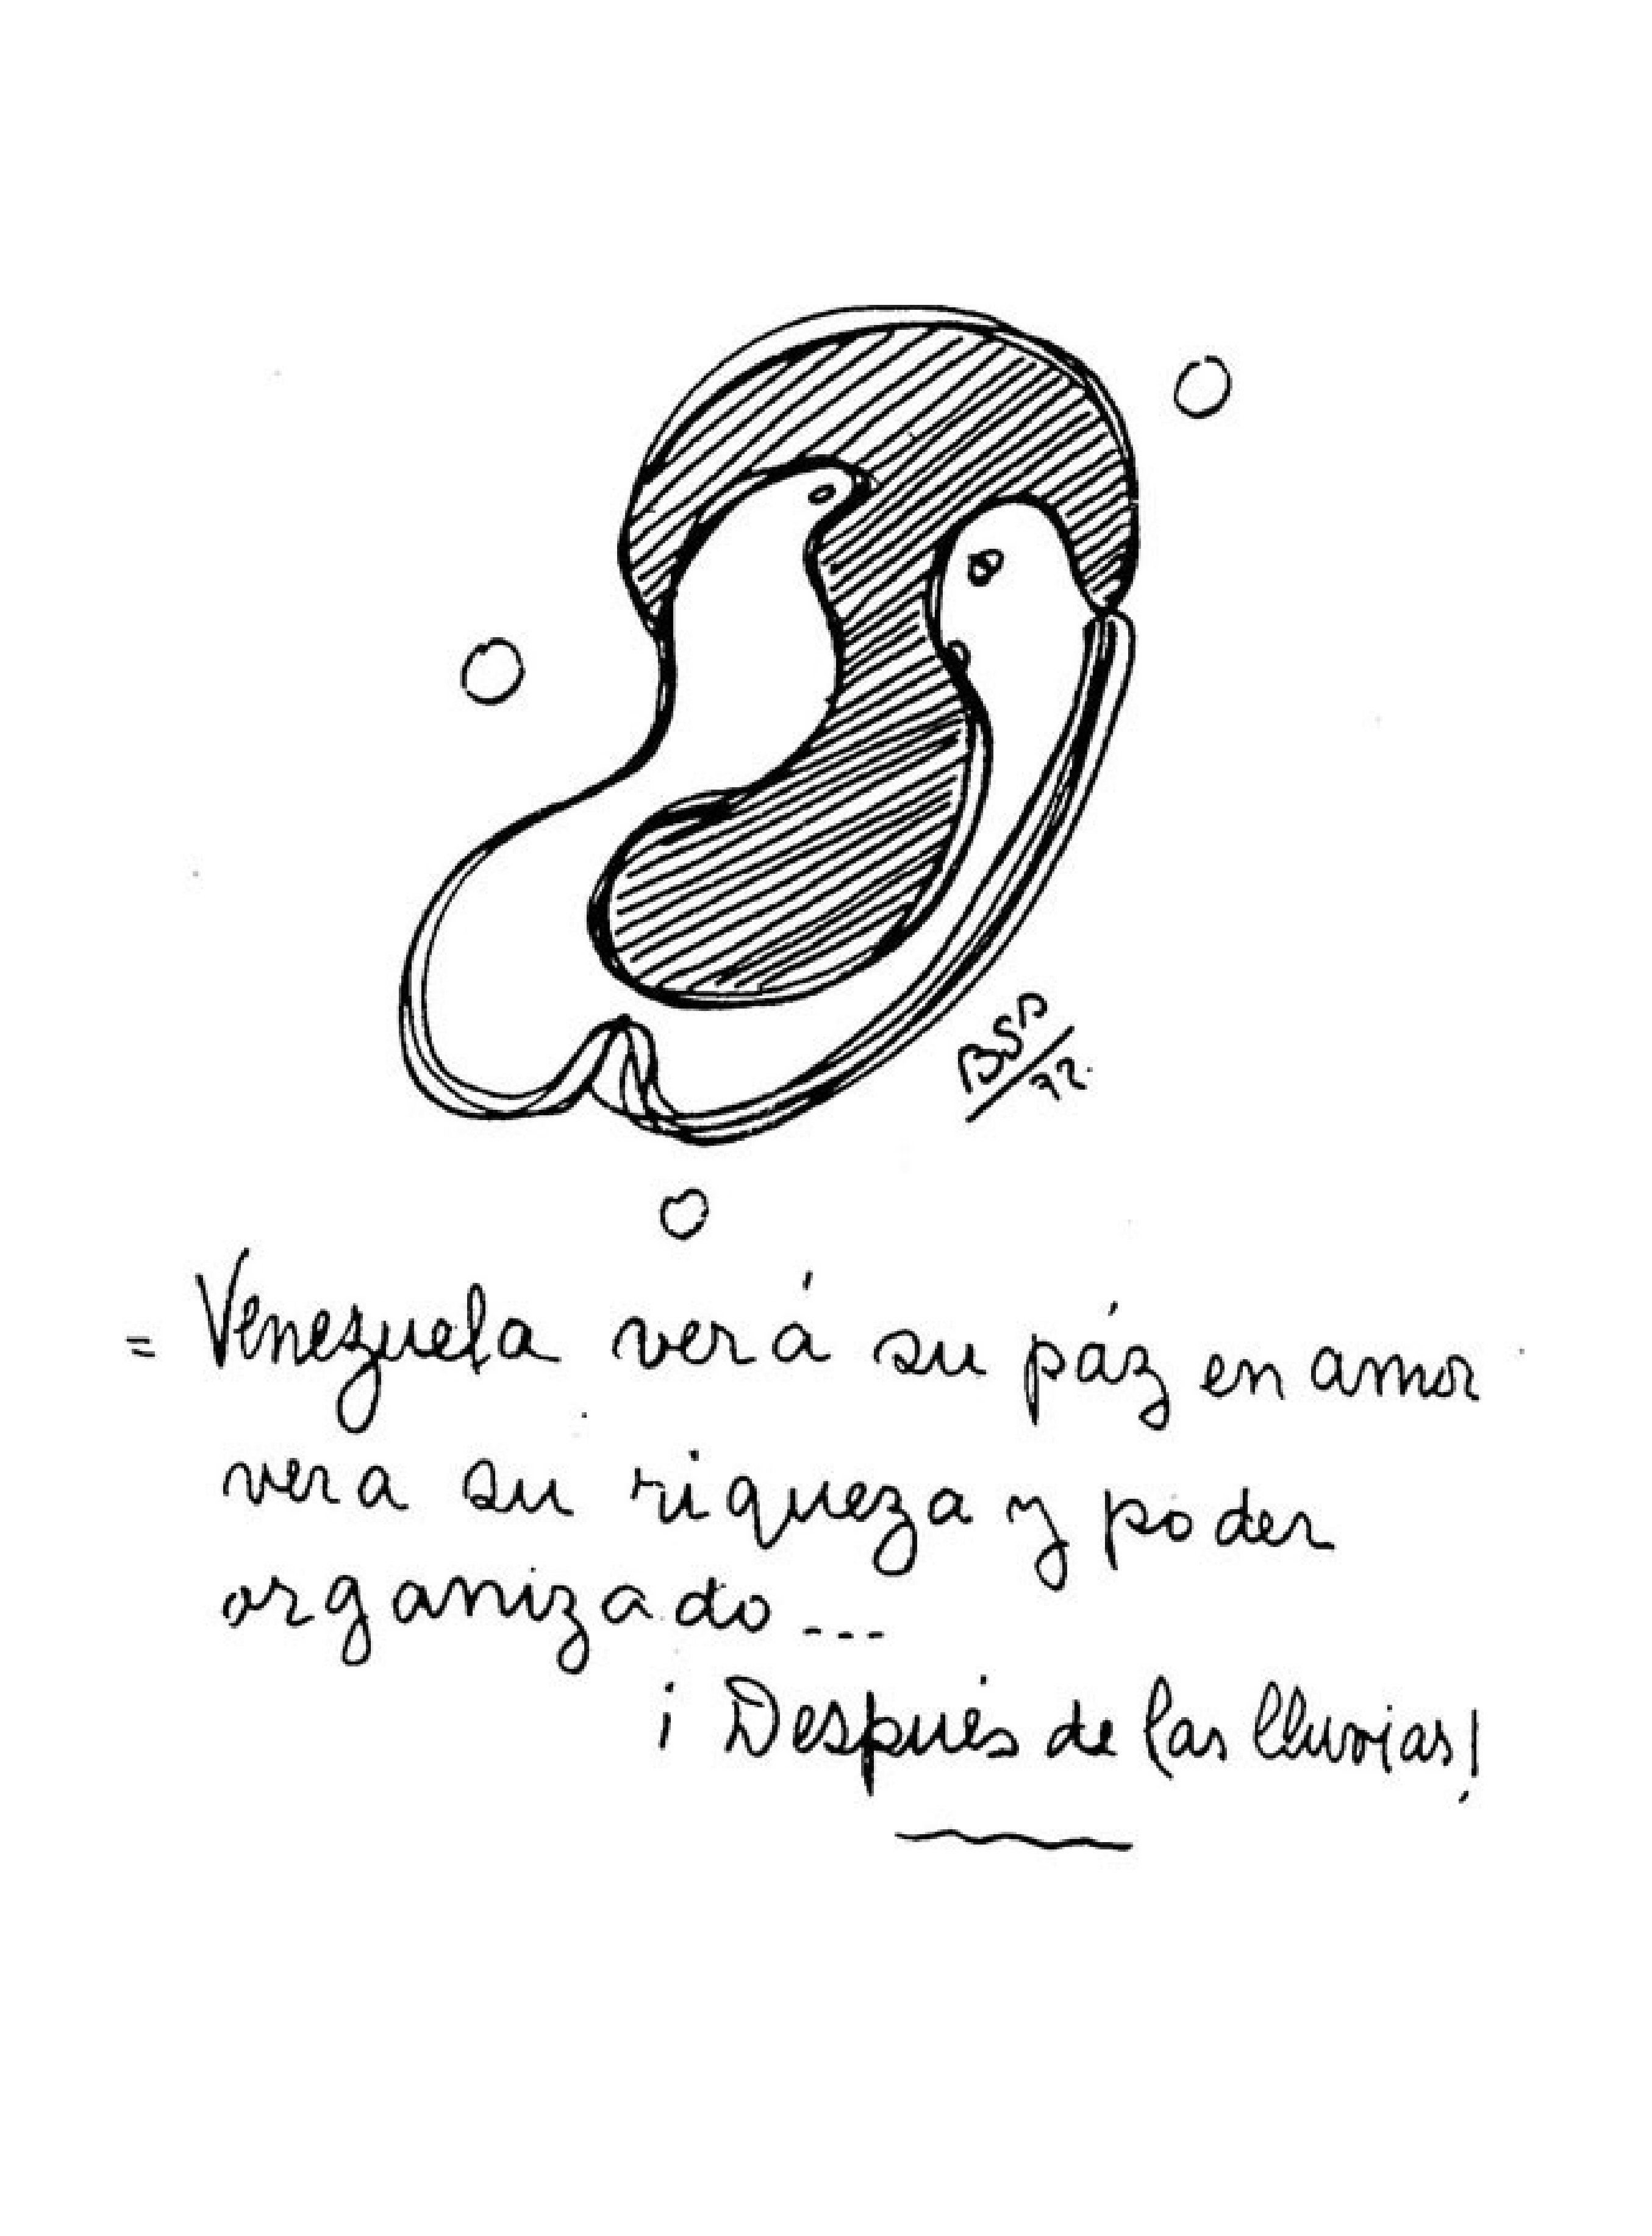 BSP/72.
= Venezuela verá su páz en amor
vera su riqueza y poder
organizado...
¡Después de las lluvias!